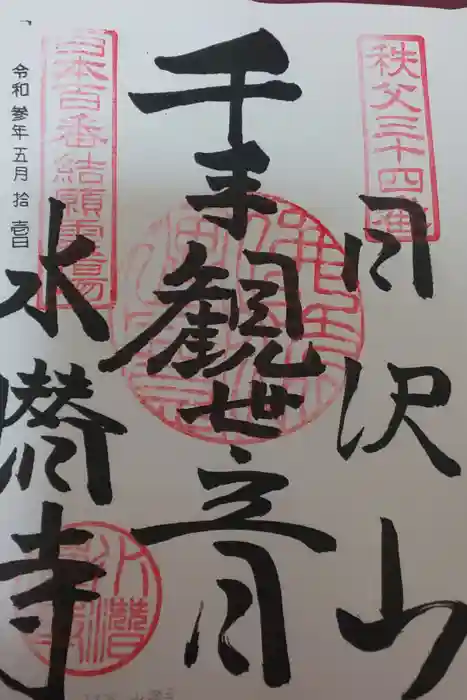 秩父三十四番
日沢山
千手觀世音
日本百番結願霊場
水潛寺
令和 参年五月 拾 壱日